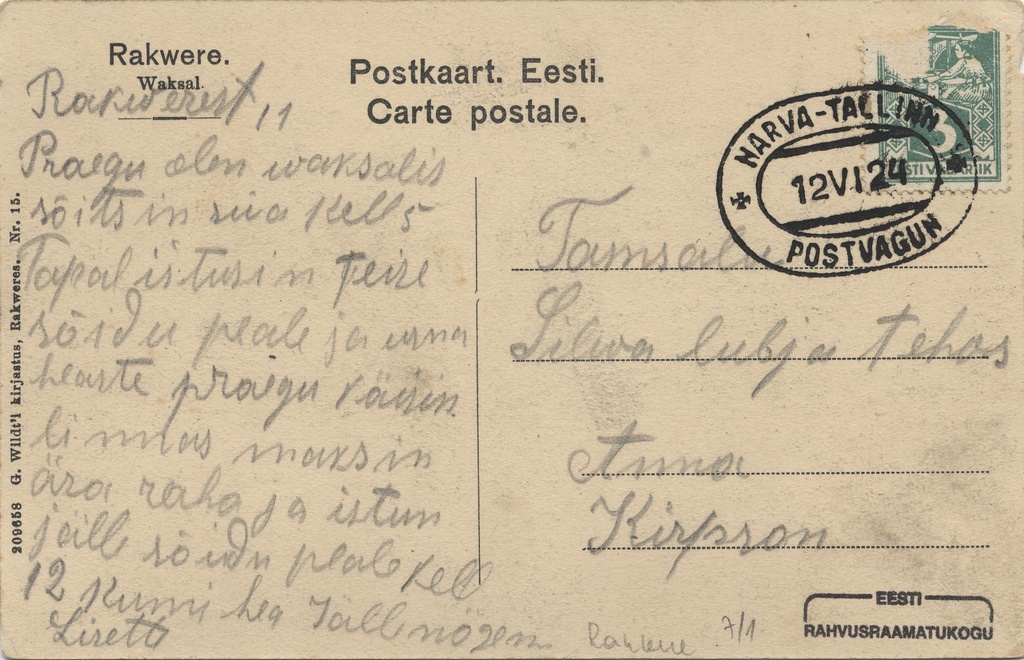 Rakwere.
Waksal.
Postkaart. Eesti.
Carte postale.
Rakwerest 11
Praegu olen waksalis
sõitsin siia kell 5
Tapal istusin teise
sõidu peale ja
hearte praegu käisin
linnas maksin
ära raha ja istun
jälle sõidu peale kell
12 kumi hea Jällenägen
Lisette
209658 G. Wildt'i kirjastus, Rakweres. Nr. 15.
NARVA-TALLINN
12 VI 24
POSTVAGUN
3
EESTI VABARIIK
Tamsalu
lubja tehas
Anna
Kirpson
Rakvere 7/1
EESTI
RAHVUSRAAMATUKOGU